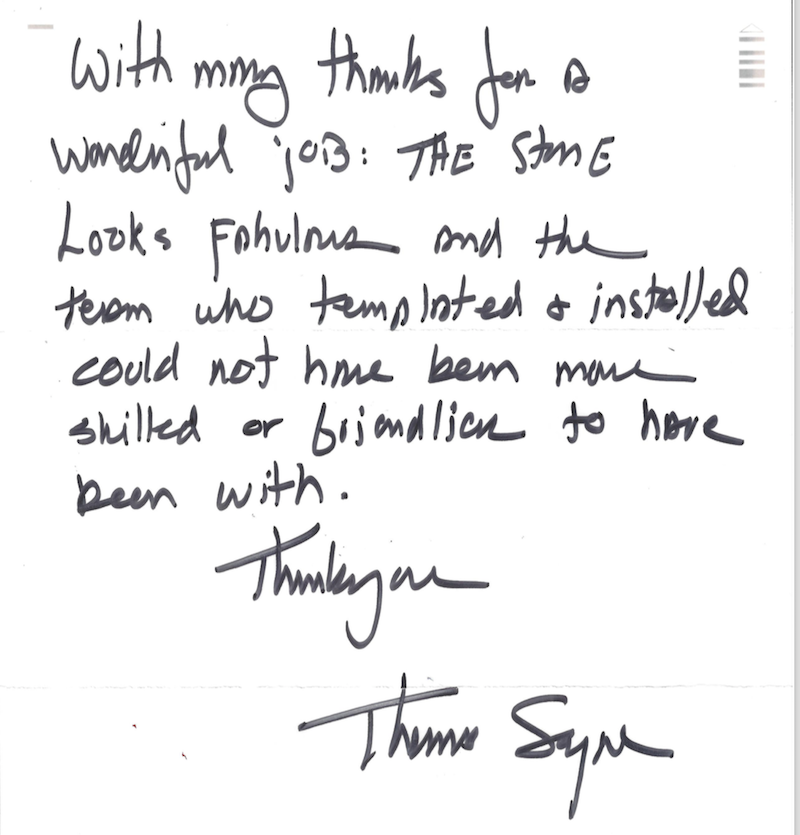 With many thanks for a
wonderful job: THE STONE
Looks Fabulous and the
team who templated & installed
could not have been more
skilled or friendlier to have
been with.
Thank you
Thomas Sayre